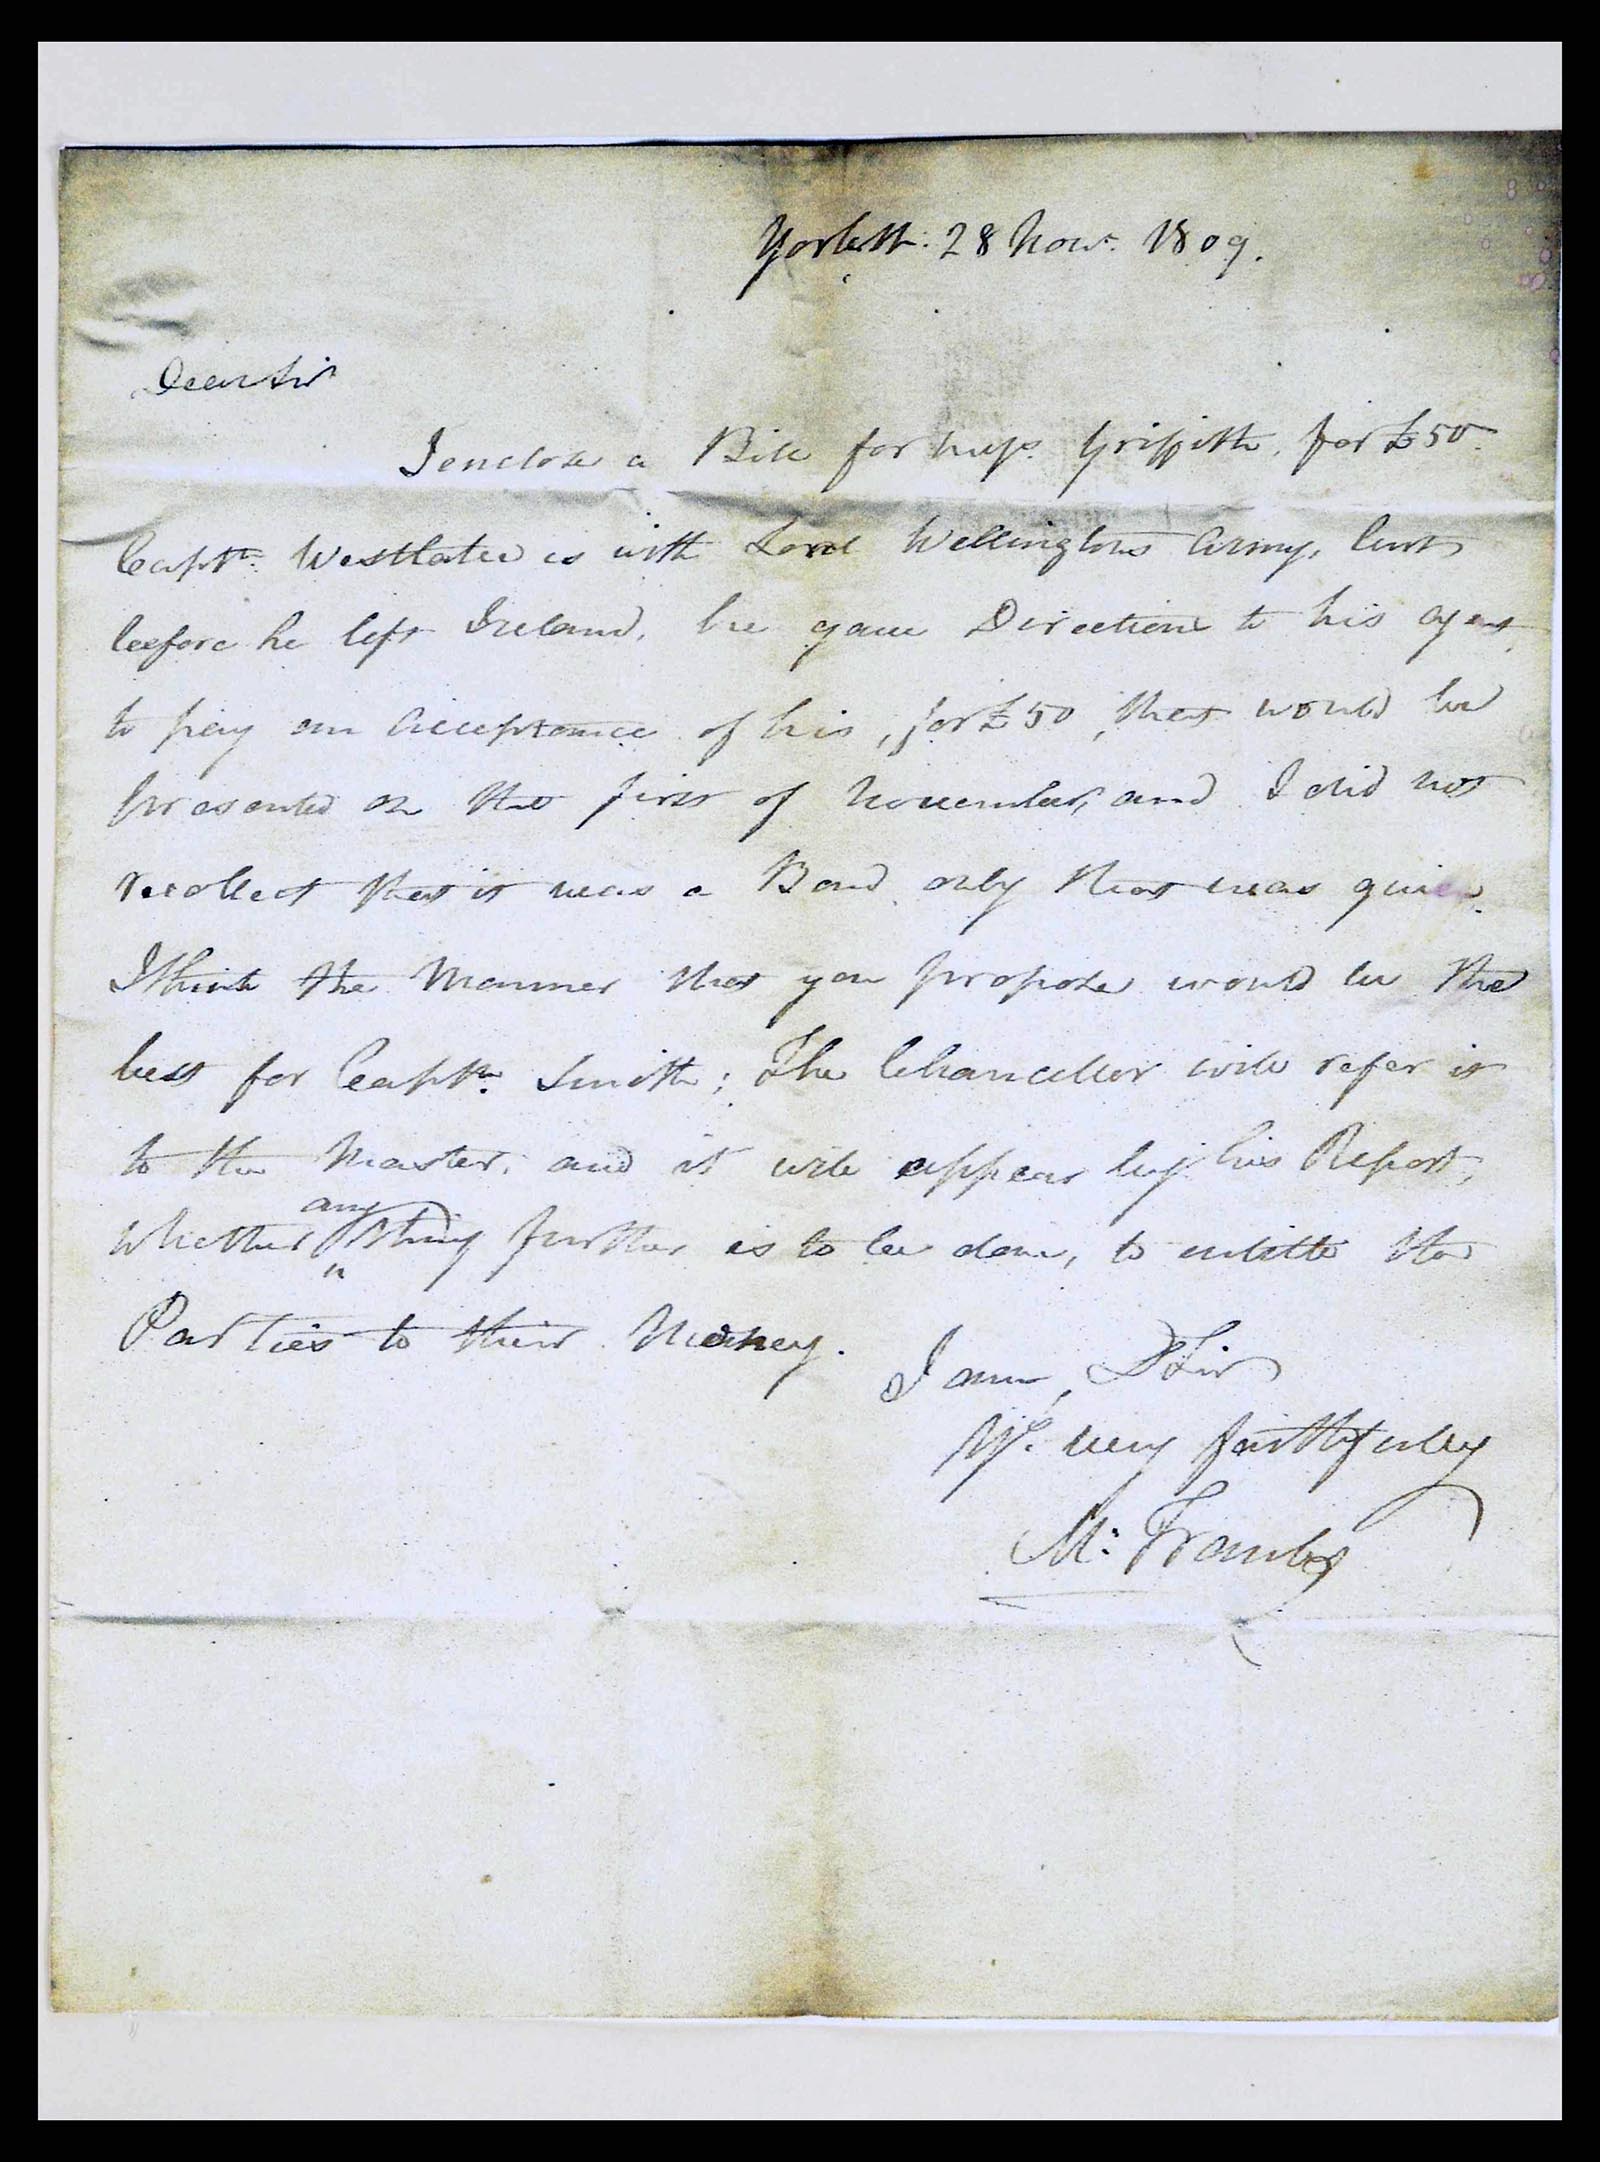 28 Novr. 1809.
Dear Sir
I enclose a Bill for Miss Griffith, for £50
Captn. is with Lord Wellingtons Army, but
before he left Ireland, he gave Direction to his agent,
to pay an acceptance of his, for £50, that would be
presented on the first of November, and I did not
recollect that it was a Bond only that was given.
I think the Manner that you propose would be the
best for Captn. Smith; The Chancellor will refer it
to the Master, and it will appear by his Report,
whether any thing further is to be done, to entitle the
Parties to their Money.
I am, D Sir
Yrs. very faithfully